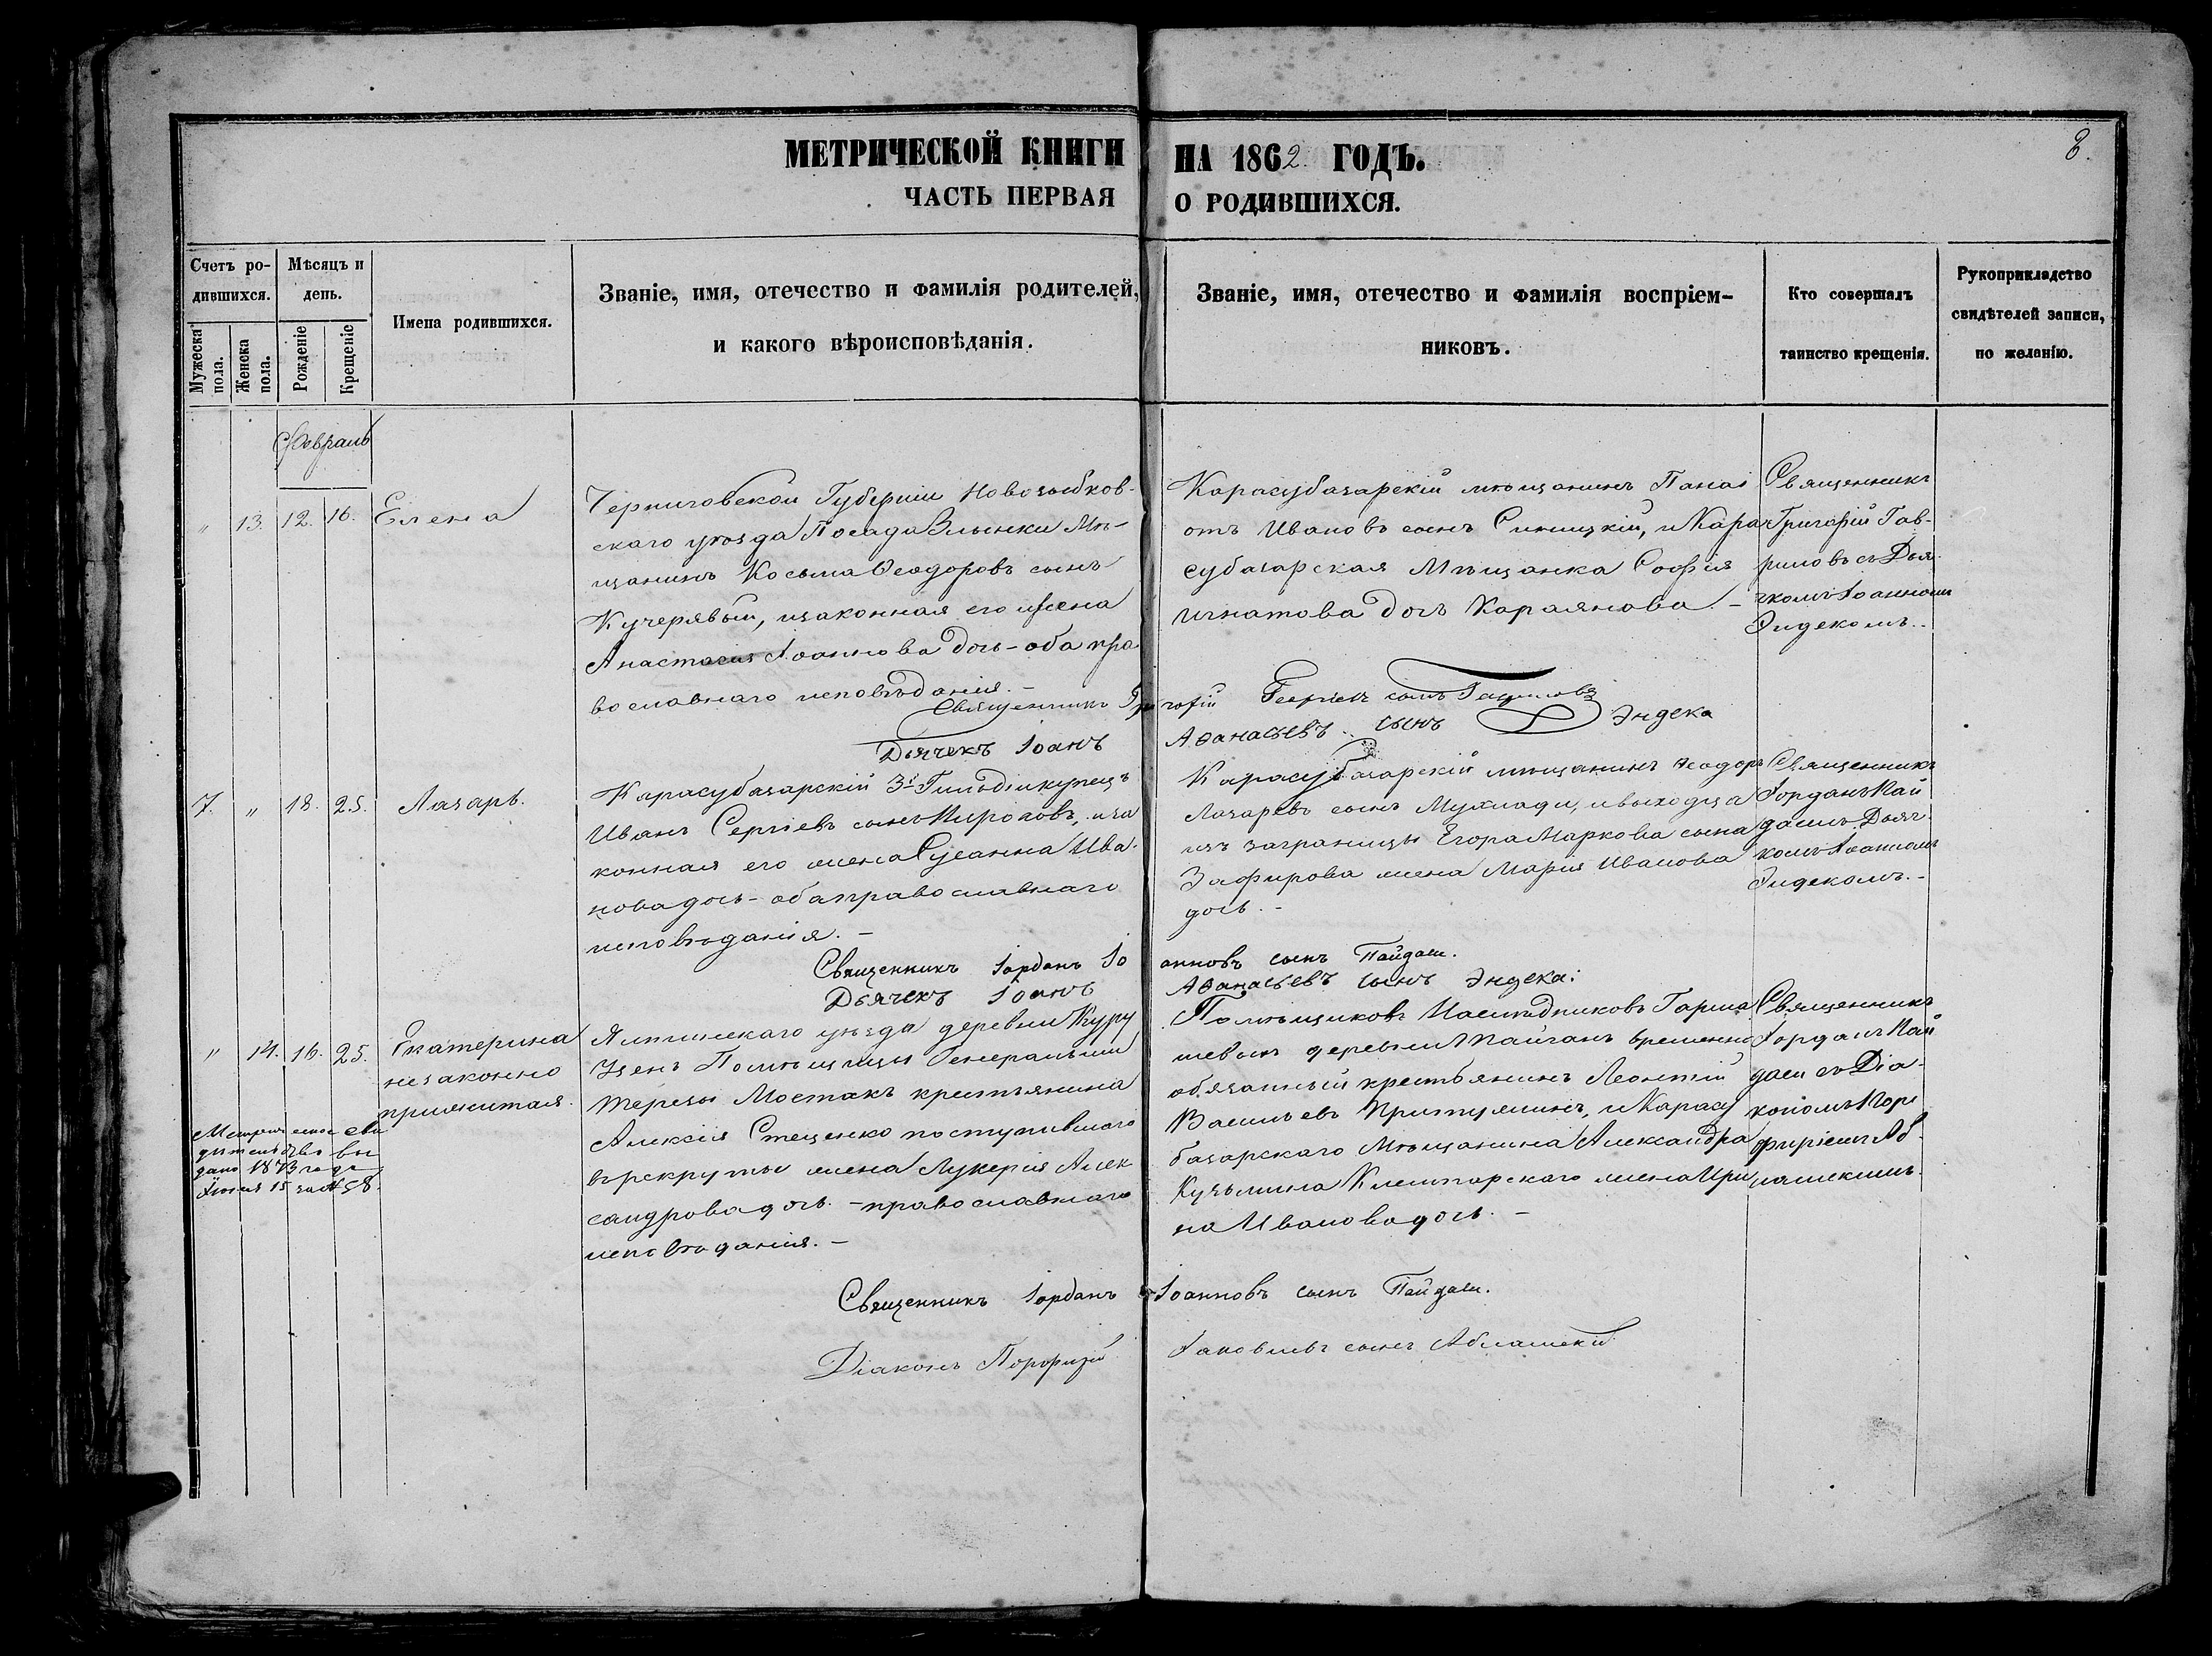 МЕТРИЧЕСКОЙ КНИГИ НА 1862 ГОДЪ.
8.
ЧАСТЬ ПЕРВАЯ О РОДИВШИХСЯ.
Счетъ родившихся.
Мужеска пола.
Женска пола.
Мѣсяцъ и день.
Рожденіе
Крещеніе
Имена родившихся.
Званіе, имя, отечество и фамилія родителей,
и какого вѣроисповѣданія.
Званіе, имя, отечество и фамилія воспріем-
никовъ.
Кто совершалъ
таинство крещенія.
Рукоприкладство
свидѣтелей записи,
по желанію.
Февраль
" 13. 12. 16. Елена
Черниговской Губерніи Новозыбков-
скаго уѣзда Посада Злынки Мѣ-
щанинъ Косьма Ѳеодоровъ сынъ
Кучерявый, изаконная его жена
Анастасия Іоаннова дочь - оба пра
вославнаго исповѣданія. -
Карасубазарскій мѣщанинъ Панаі
отъ Ивановъ сынъ Синицкій, и Кара
субазарская Мѣщанка Софія
Игнатова дочь Караянова. -
Священникъ
Григорій Гав-
риловъ съ Дья
чкомъ Іоанномъ
Эндекомъ..
Священникъ Григорій Георгіевъ сынъ Гавриловъ
Дьячекъ Іоанъ Аѳанасьевъ сынъ Эндека
7. " 18. 25. Лазарь.
Карасубазарскій 3й Гильдіи купецъ
Иванъ Сергіевъ сынъ Пироповъ, иза
конная его жена Сусанна Ива-
нова дочь - оба православнаго
исповѣданія. -
Карасубазарскій мѣщанинъ Ѳеодоръ
Лазаревъ сынъ Мухлади, ивыходца
изъ заграницы Егора Маркова сына
Зафирова жена Марія Иванова
дочь. -
Священникъ
Іорданъ Пай
даши Дьяч-
комъ Іоанномъ
Эндекомъ. -
Священникъ Іорданъ Іоанновъ сынъ Пайдаши.
Дьячекъ Іоанъ Аѳанасьевъ сынъ Эндека:
" 14. 16. 25. Екатерина
незаконно
прижитая.
Метрическое сви
дѣтельство вы
дано 1873 года
Іюня 15 за № 58.
Ялтинскаго уѣзда деревни Куру
Узень Помѣщицы Генеральши
Терезы Мостакъ крестьянина
Алексія Стеценко поступившаго
врекруты жена Лукерія Алек
сандрова дочь. - православнаго
исповѣданія. -
Помѣщиковъ Наслѣдниковъ
деревни Тайганъ временно
обязанный крестьянинъ Леонтій
Васильевъ Притулинъ, и Карасу
базарскаго Мѣщанина Александра
Кузьмина жена Ири
на Иванова дочь. -
Священникъ
Іорданъ Пай
даши съ Діа-
кономъ Пор
фиріемъ Аб-
лашекимъ.
Священникъ Іорданъ Іоанновъ сынъ Пайдаши.
Діаконъ Порфирій Іаковлевъ сынъ Аблашекій